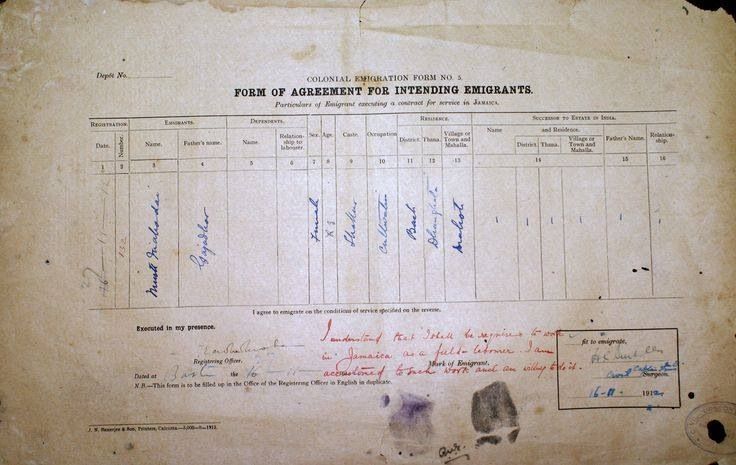 Depôt No.
COLONIAL EMIGRATION FORM NO. 5.
FORM OF AGREEMENT FOR INTENDING EMIGRANTS.
Particulars of Emigrant executing a contract for service in JAMAICA.
REGISTRATION. EMIGRANTS. DEPENDENTS. Sex. Age. Caste. Occupation RESIDENCE. SUCCESSOR TO ESTATE IN INDIA.
Date. Number. Name. Father's name. Name. Relationship to labourer. District. Thana. Village or Town and Mahalla. Name and Residence. District. Thana. Village or Town and Mahalla. Father's Name. Relationship.
1 2 3 4 5 6 7 8 9 10 11 12 13 14 15 16
Gajadhar Female Thakur Cultivator Basti
I agree to emigrate on the conditions of service specified on the reverse.
Executed in my presence.
I understand that I shall be required to work
in Jamaica as a field labourer I am
accustomed to such work and am willing to do it.
Registering Officer.
Mark of Emigrant.
Dated at Basti the 16 11
N.B.—This form is to be filled up in the Office of the Registering Officer in English in duplicate.
fit to emigrate,
Surgeon.
16-11- 1912
J. N. Banerjee & Son, Printers, Calcutta